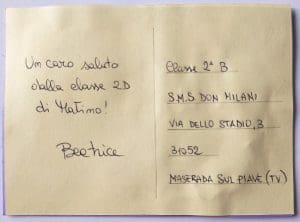 Un caro saluto
dalla classe 2D
di Matino!
Beatrice
Classe 2ª B
S.M.S DON MILANI
VIA DELLO STADIO, 3
31052
MASERADA SUL PIAVE (TV)